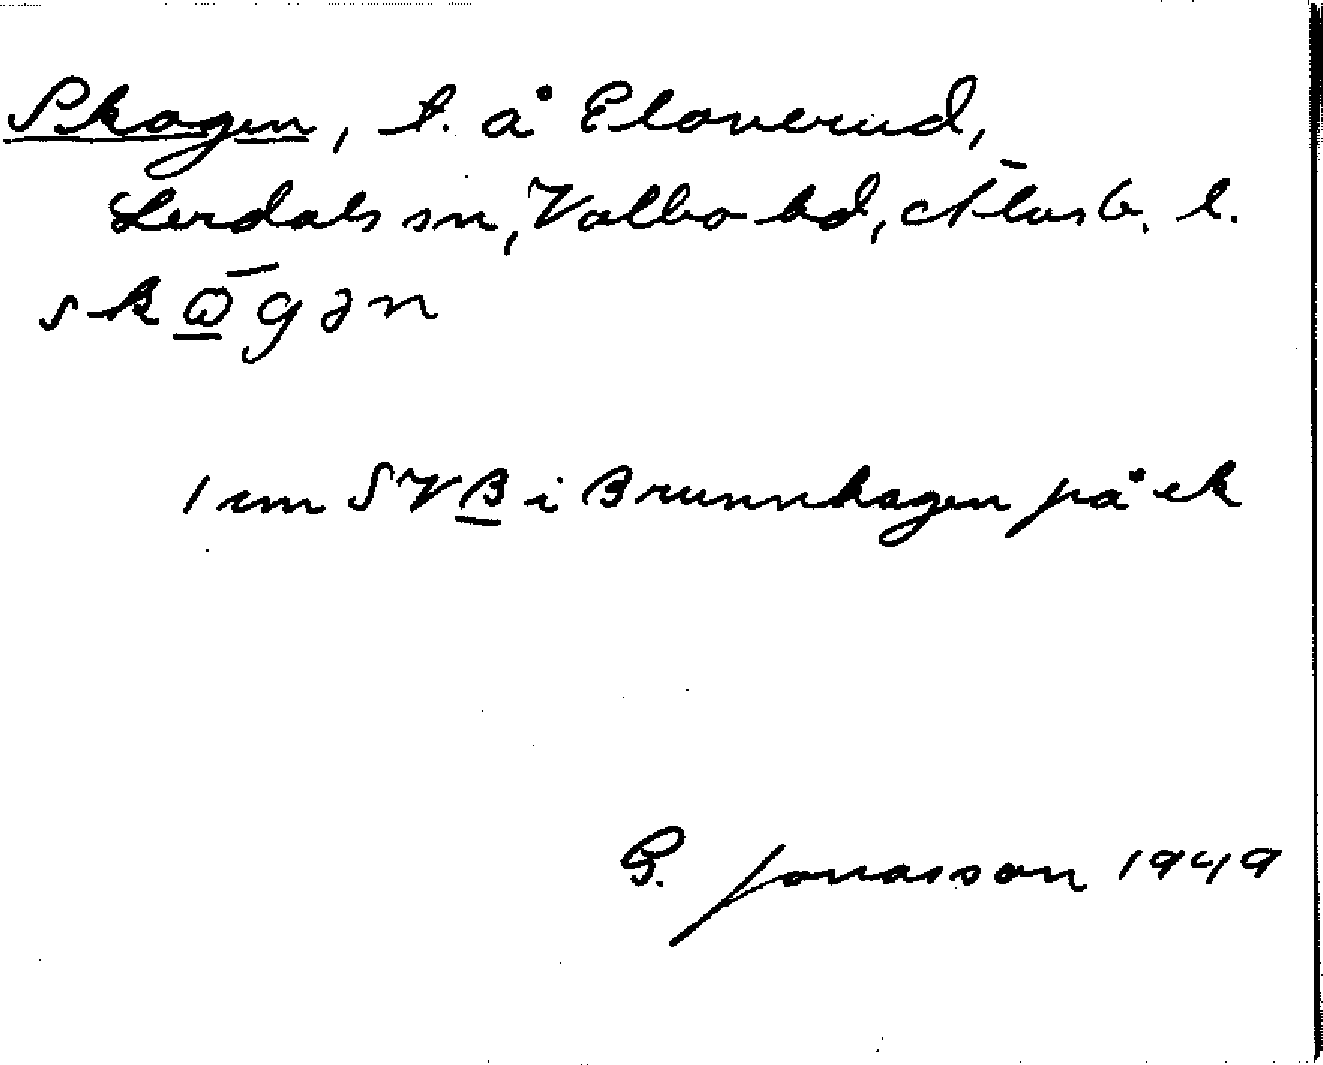 Skogen, t. å Eloverud,
Lerdals sn, Valbo hd, Älvsb. l.
skω̄gən
1 cm SV B i Brunnhagen på ek
G. Jonasson 1949